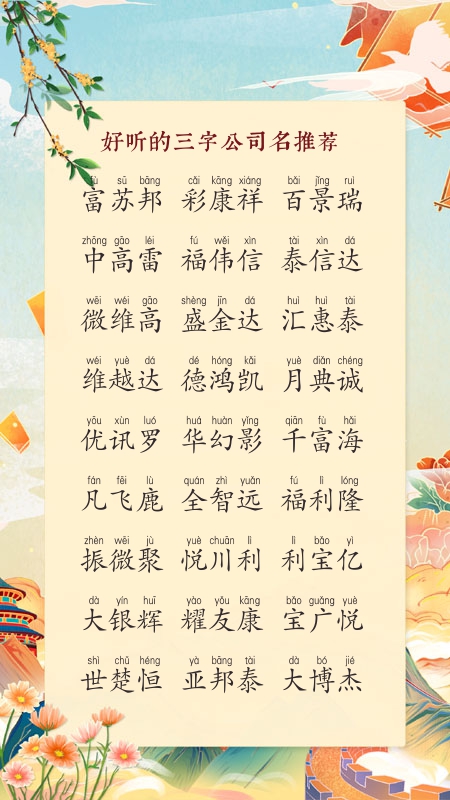 好听的三字公司名推荐
fù sū bāng cǎi kāng xiáng bǎi jǐng ruì
富苏邦 彩康祥 百景瑞
zhōng gāo léi fú wěi xìn tài xìn dá
中高雷 福伟信 泰信达
wēi wéi gāo shèng jīn dá huì huì tài
微维高 盛金达 汇惠泰
wéi yuè dá dé hóng kǎi yuè diǎn chéng
维越达 德鸿凯 月典诚
yōu xùn luó huá huàn yǐng qiān fù hǎi
优讯罗 华幻影 千富海
fán fēi lù quán zhì yuǎn fú lì lóng
凡飞鹿 全智远 福利隆
zhèn wēi jù yuè chuān lì lì bǎo yì
振微聚 悦川利 利宝亿
dà yín huī yào yǒu kāng bǎo guǎng yuè
大银辉 耀友康 宝广悦
shì chǔ héng yà bāng tài dà bó jié
世楚恒 亚邦泰 大博杰